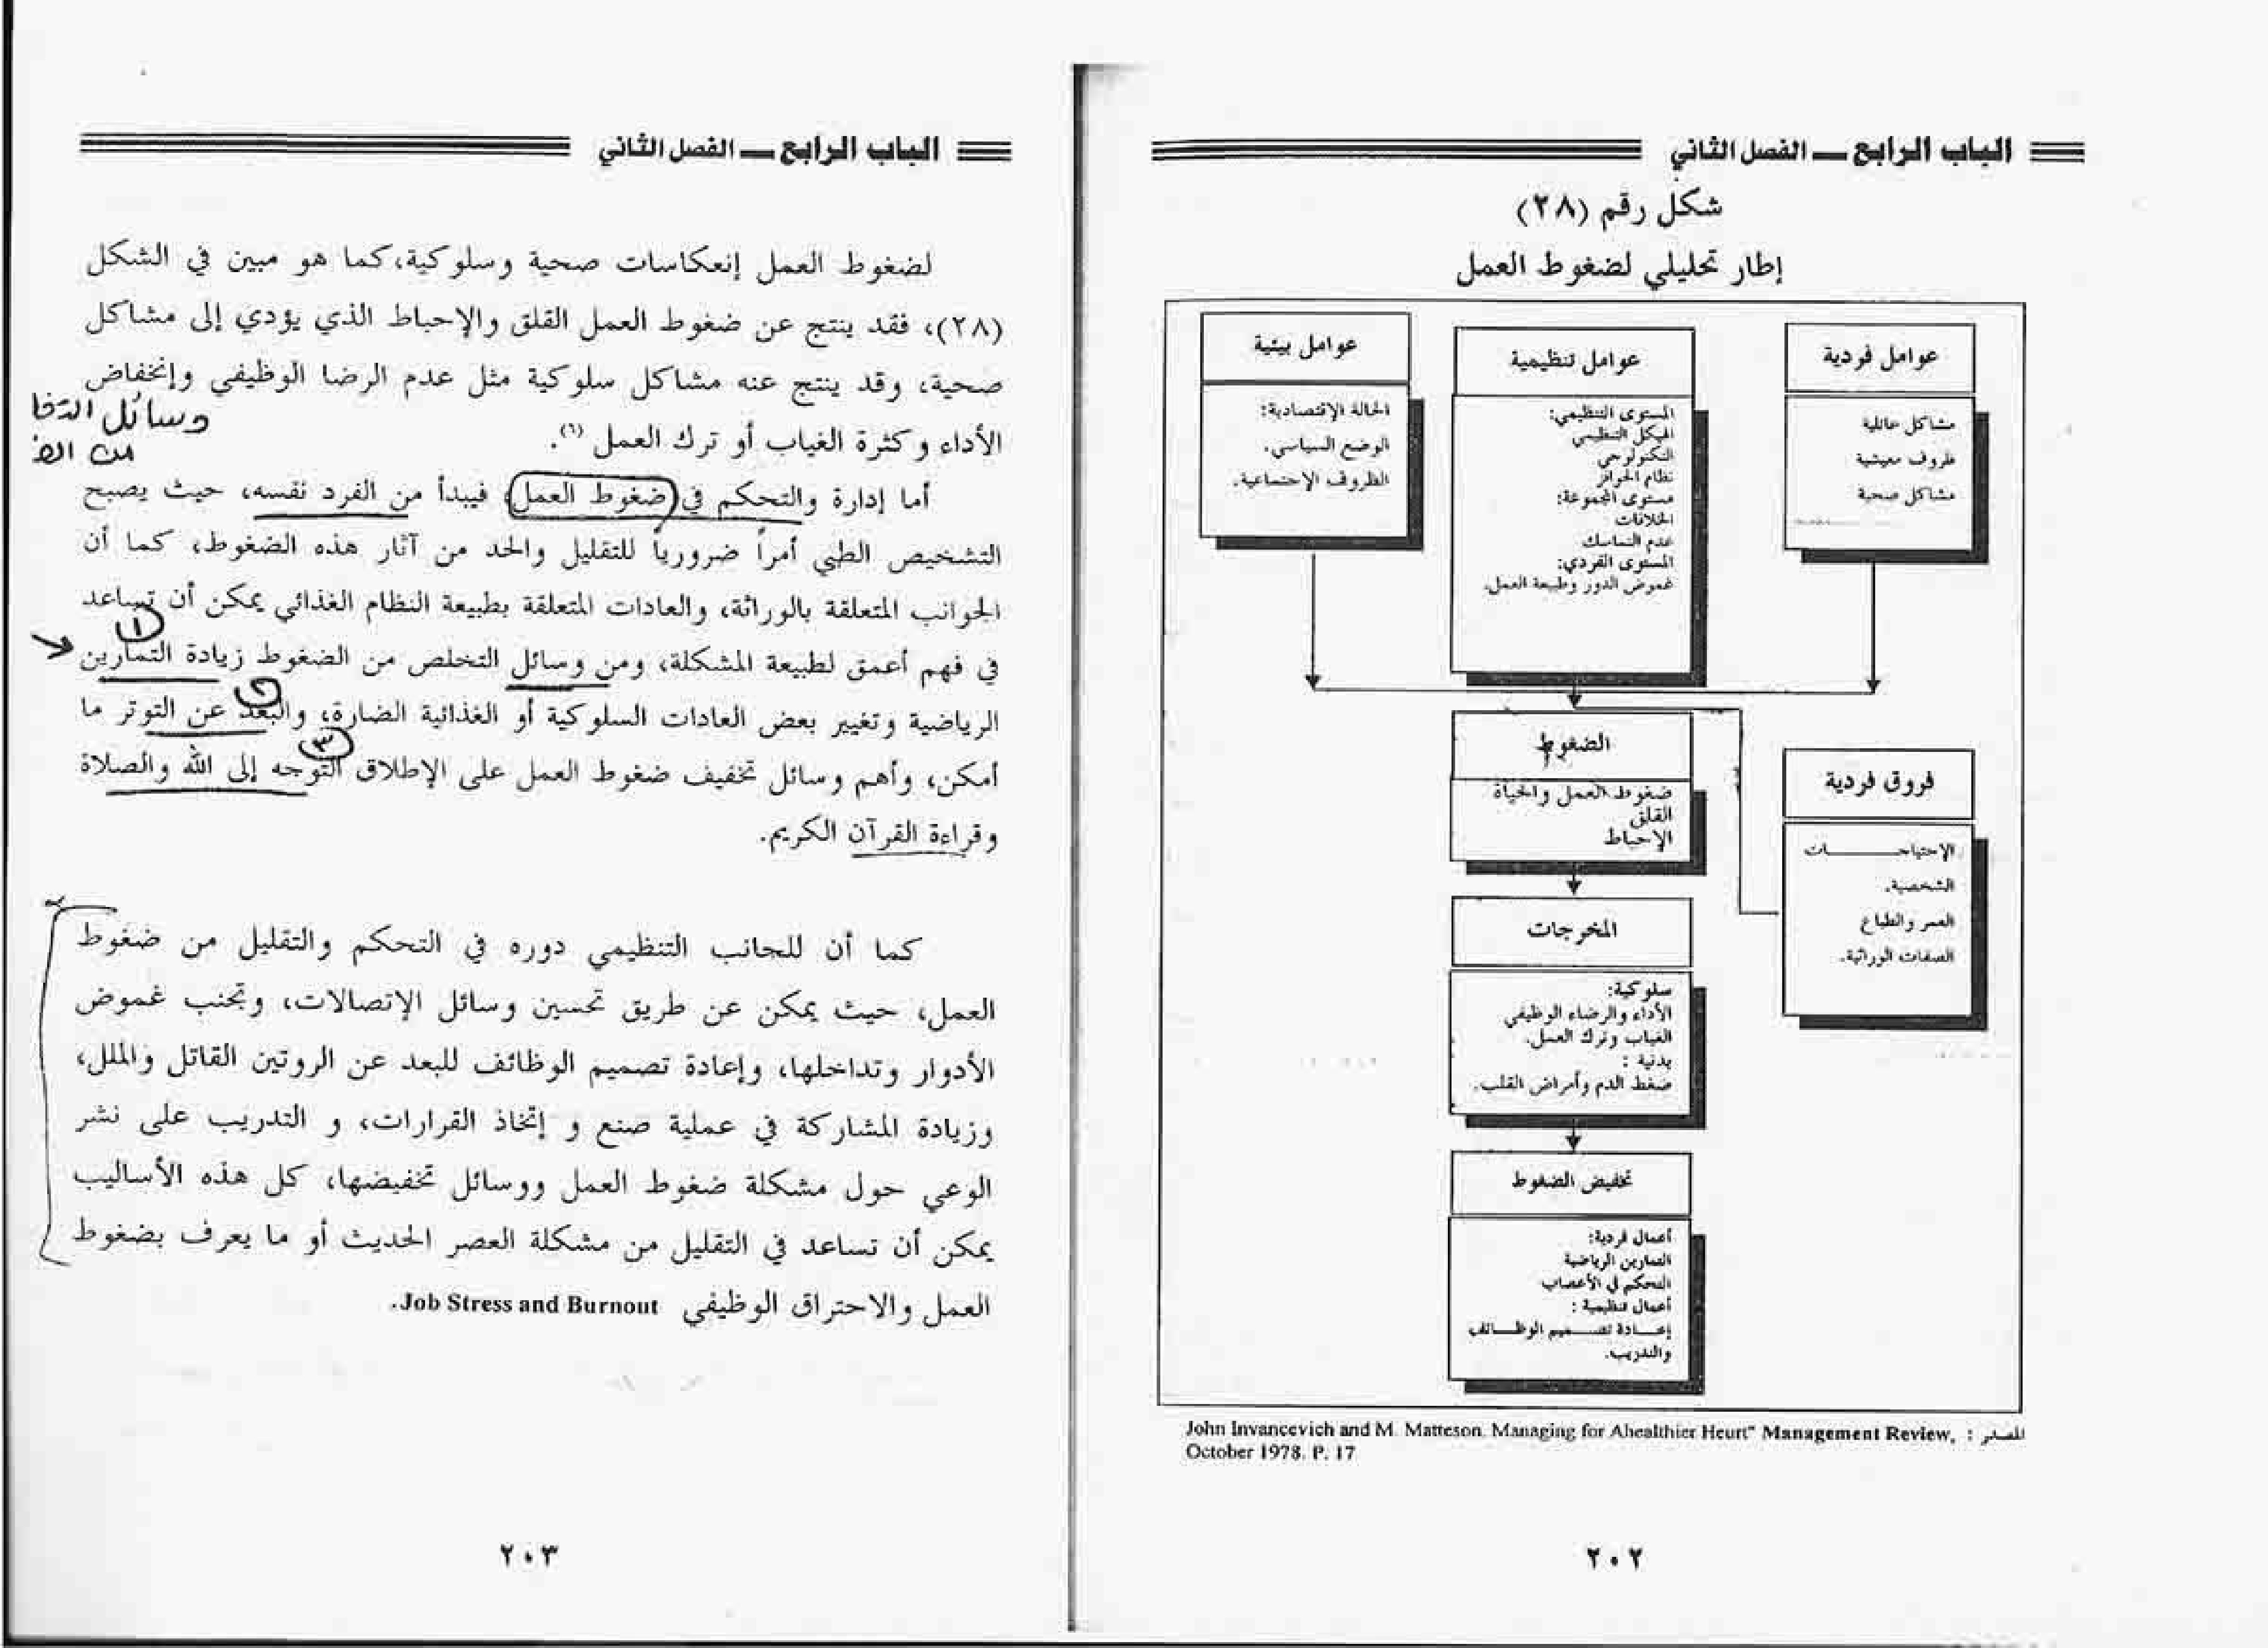 الباب الرابع ـ الفصل الثاني
شكل رقم (٢٨)
إطار تحليلي لضغوط العمل
عوامل فردية
مشاكل عائلية
ظروف معيشية
مشاكل صحية
عوامل تنظيمية
المستوى التنظيمي:
الهيكل التنظيمي
التكنولوجي
نظام الحوافز
مستوى المجموعة:
الخلافات
عدم التماسك
المستوى الفردي:
غموض الدور وطبيعة العمل.
عوامل بيئية
الحالة الإقتصادية:
الوضع السياسي.
الظروف الإجتماعية.
الضغوط
ضغوط العمل والحياة
القلق
الإحباط
فروق فردية
الإحتياجـــــــات
الشخصية.
العمر والطباع
الصفات الوراثية.
المخرجات
سلوكية:
الأداء والرضاء الوظيفي
الغياب وترك العمل.
بدنية :
ضغط الدم وأمراض القلب.
تخفيض الضغوط
أعمال فردية:
التمارين الرياضية
التحكم في الأعصاب
أعمال تنظيمية :
إعـــادة تصـــميم الوظـــائف
والتدريب.
المصدر : John Invancevich and M. Matteson. Managing for Ahealthier Heurt" Management Review,
October 1978. P. 17
٢٠٢
الباب الرابع ـ الفصل الثاني
لضغوط العمل إنعكاسات صحية وسلوكية،كما هو مبين في الشكل
(٢٨)، فقد ينتج عن ضغوط العمل القلق والإحباط الذي يؤدي إلى مشاكل
صحية، وقد ينتج عنه مشاكل سلوكية مثل عدم الرضا الوظيفي وإنخفاض
الأداء وكثرة الغياب أو ترك العمل (٦).
وسائل
من
أما إدارة والتحكم في ضغوط العمل، فيبدأ من الفرد نفسه، حيث يصبح
التشخيص الطبي أمراً ضرورياً للتقليل والحد من آثار هذه الضغوط، كما أن
الجوانب المتعلقة بالوراثة، والعادات المتعلقة بطبيعة النظام الغذائي يمكن أن تساعد
١
في فهم أعمق لطبيعة المشكلة، ومن وسائل التخلص من الضغوط زيادة التمارين
٢
الرياضية وتغيير بعض العادات السلوكية أو الغذائية الضارة، والبعد عن التوتر ما
٣
أمكن، وأهم وسائل تخفيف ضغوط العمل على الإطلاق التوجه إلى الله والصلاة
وقراءة القرآن الكريم.
كما أن للجانب التنظيمي دوره في التحكم والتقليل من ضغوط
العمل، حيث يمكن عن طريق تحسين وسائل الإتصالات، وتجنب غموض
الأدوار وتداخلها، وإعادة تصميم الوظائف للبعد عن الروتين القاتل والملل،
وزيادة المشاركة في عملية صنع و إتخاذ القرارات، و التدريب على نشر
الوعي حول مشكلة ضغوط العمل ووسائل تخفيضها، كل هذه الأساليب
يمكن أن تساعد في التقليل من مشكلة العصر الحديث أو ما يعرف بضغوط
العمل والاحتراق الوظيفي Job Stress and Burnout.
٢٠٣